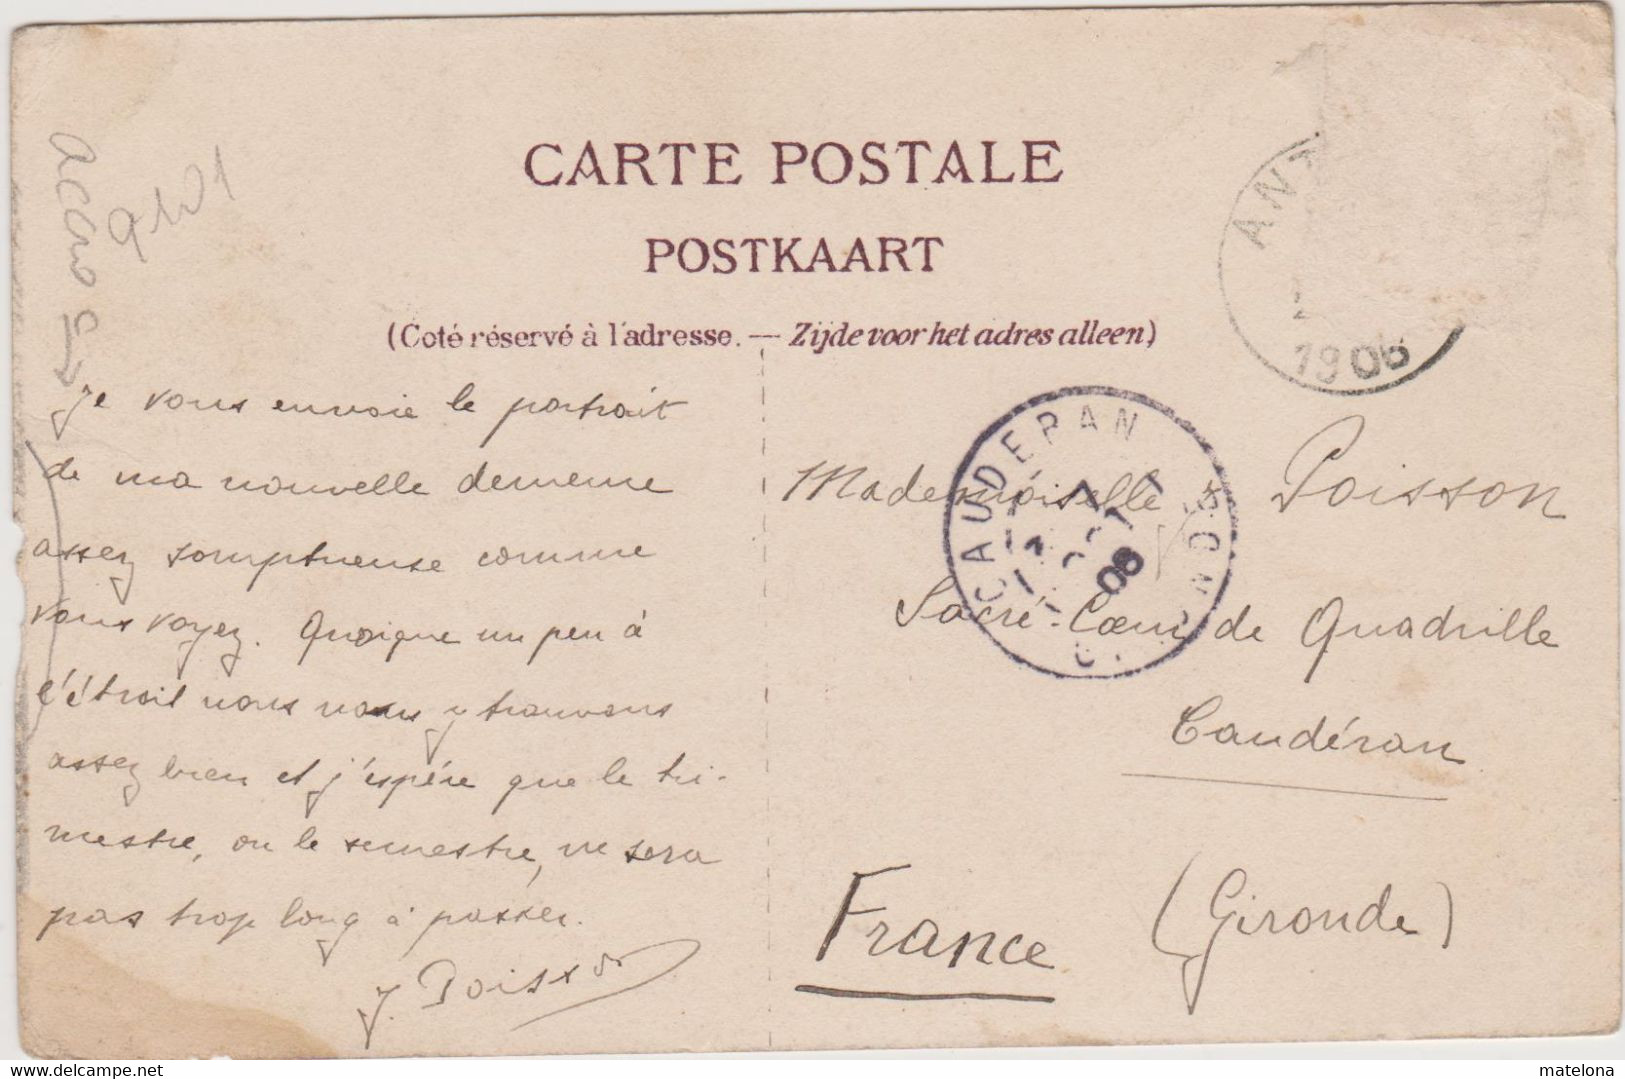 CARTE POSTALE
POSTKAART
(Coté réservé à l'adresse. — Zijde voor het adres alleen)
accro
ANT
1906
CAUDERAN
GIRONDE
06
Je vous envoie le portrait
de ma nouvelle demeure
assez somptueuse comme
vous voyez. Quoique un peu à
l'étroit nous nous y trouvons
assez bien et j'espère que le tri-
mestre, ou le semestre, ne sera
pas trop long à passer.
J. Poisson
Mademoiselle Poisson
Sacré-Cœur de Quadrille
Caudéran
France (Gironde)
matelona